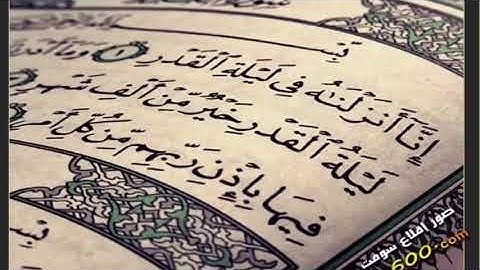 إِنَّا أَنزَلْنَٰهُ فِى لَيْلَةِ ٱلْقَدْرِ ١ وَمَآ أَدْر
لَيْلَةُ ٱلْقَدْرِ خَيْرٌ مِّنْ أَلْفِ شَهْرٍ
فِيهَا بِإِذْنِ رَبِّهِم مِّن كُلِّ أَمْرٍ
صور اقلاع سوفت
600.com